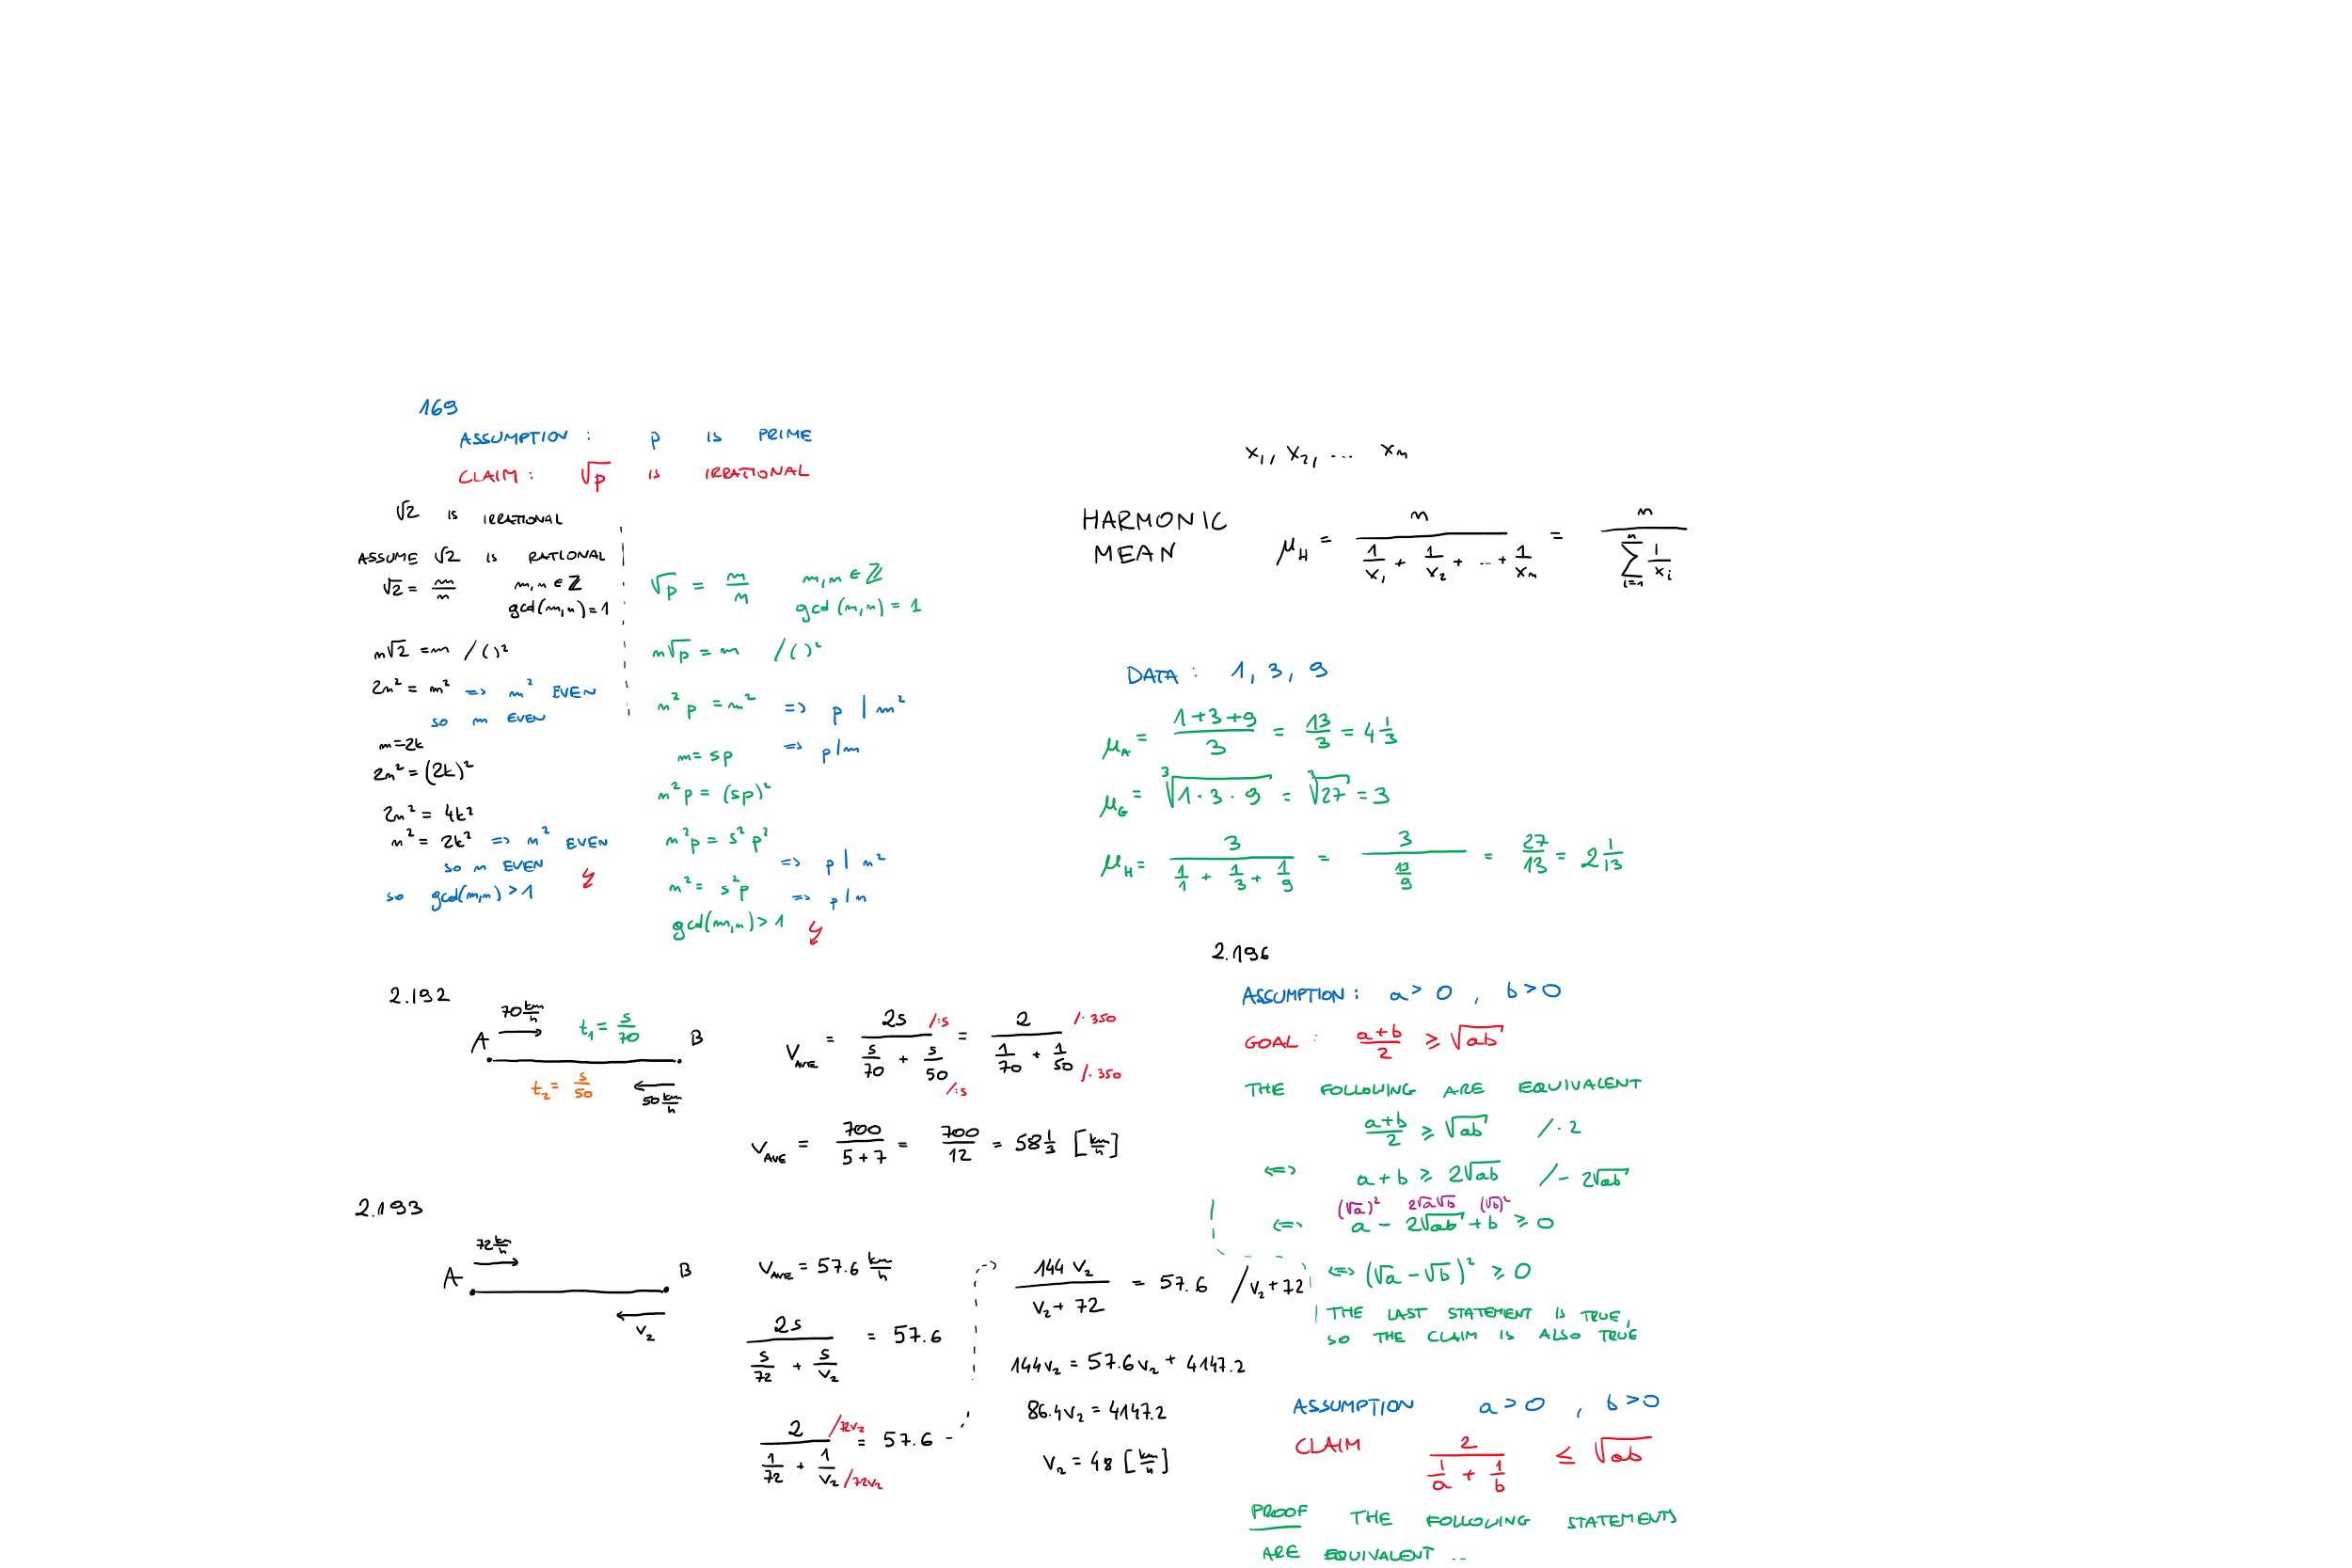 169
ASSUMPTION : p IS PRIME
CLAIM : √p IS IRRATIONAL
√2 IS IRRATIONAL
ASSUME √2 IS RATIONAL
√2 = m/n m,n ∈ ℤ
gcd(m,n) = 1
n√2 = m /( )²
2n² = m² => m² EVEN
SO m EVEN
m=2k
2n² = (2k)²
2n² = 4k²
n² = 2k² => n² EVEN
SO n EVEN
SO gcd(m,n) > 1 ↯
√p = m/n m,n ∈ ℤ
gcd(m,n) = 1
n√p = m /( )²
n²p = m² => p | m²
m = sp => p | m
n²p = (sp)²
n²p = s²p²
=> p | n²
n² = s²p => p | n
gcd(m,n) > 1 ↯
x₁, x₂, ... xₙ
HARMONIC MEAN
μ_H = n/(1/x₁ + 1/x₂ + ... + 1/xₙ) = n/(∑_{i=1}^{n} 1/xᵢ)
DATA : 1, 3, 9
μ_A = (1+3+9)/3 = 13/3 = 4 1/3
μ_G = ∛(1·3·9) = ∛27 = 3
μ_H = 3/(1/1 + 1/3 + 1/9) = 3/(13/9) = 27/13 = 2 1/13
2.192
70 km/h
A t₁ = s/70 B
t₂ = s/50 50 km/h
V_AVE = 2s/(s/70 + s/50) /:s /:s = 2/(1/70 + 1/50) /·350 /·350
V_AVE = 700/(5+7) = 700/12 = 58 1/3 [km/h]
2.193
72 km/h
A B
v₂
V_AVE = 57.6 km/h
2s/(s/72 + s/v₂) = 57.6
2/(1/72 + 1/v₂) /72v₂ /72v₂ = 57.6
144 v₂/(v₂ + 72) = 57.6 /v₂+72
144v₂ = 57.6v₂ + 4147.2
86.4v₂ = 4147.2
v₂ = 48 [km/h]
2.196
ASSUMPTION : a > 0 , b > 0
GOAL : (a+b)/2 ≥ √ab
THE FOLLOWING ARE EQUIVALENT
(a+b)/2 ≥ √ab /·2
<=> a + b ≥ 2√ab /- 2√ab
(√a)² 2√a√b (√b)²
<=> a - 2√ab + b ≥ 0
<=> (√a - √b)² ≥ 0
THE LAST STATEMENT IS TRUE,
SO THE CLAIM IS ALSO TRUE
ASSUMPTION a > 0 , b > 0
CLAIM 2/(1/a + 1/b) ≤ √ab
PROOF THE FOLLOWING STATEMENTS
ARE EQUIVALENT ..